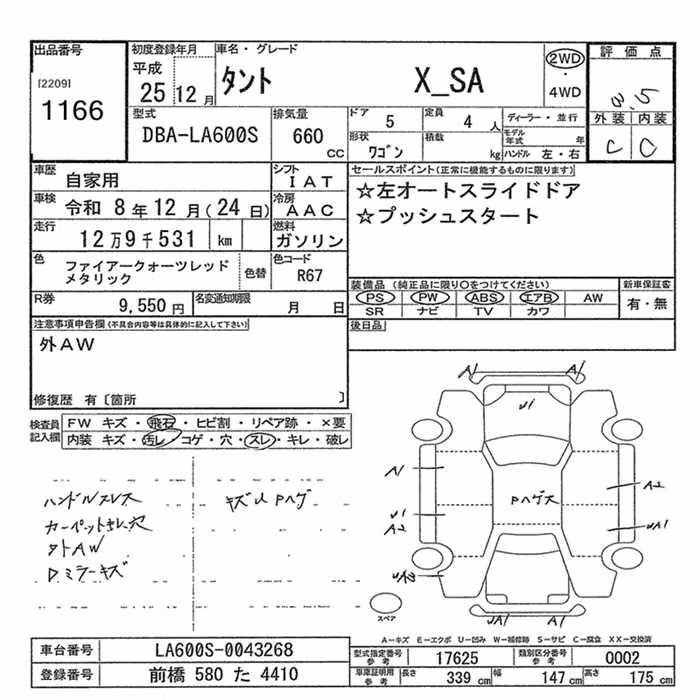 出品番号
[2209]
1166
初度登録年月
平成
25 12 月
車名・グレード
タント X_SA
2WD
・
4WD
評価点
3.5
外装 内装
C C
型式
DBA-LA600S
排気量
660
CC
ドア
5
定員
4 人
形状
ワゴン
積載
kg
ディーラー・並行
モデル年式
年
ハンドル 左・右
車歴
自家用
シフト
IAT
車検
令和 8年12月(24日)
冷房
AAC
走行
12万9千531 km
燃料
ガソリン
色
ファイアークォーツレッド
メタリック
色替
色コード
R67
R券
9,550円
名変通知期限
月 日
セールスポイント(正常に機能するものに限ります)
☆左オートスライドドア
☆プッシュスタート
装備品 (純正品に限り○をつけてください)
PS PW ABS エアB AW
SR ナビ TV カワ
新車保証書
有・無
後日品
注意事項申告欄(不具合内容等は具体的に記入して下さい)
外AW
修復歴 有〔箇所 〕
検査員
記入欄
FW キズ・飛石・ヒビ割・リペア跡・×要
内装 キズ・汚レ・コゲ・穴・スレ・キレ・破レ
ハンドルスレス
外AW
Dミラーキズ
キズUPハゲ
A1
A1
U1
A1
U1
A2
Pハゲス
A2
UA1
UA1
A1
スペア
A-キズ E-エクボ U-凹み W-補修跡 S-サビ C-腐食 XX-交換済
車台番号
LA600S-0043268
登録番号
前橋 580 た 4410
型式指定番号
参考
17625
類別区分番号
参考
0002
車庫証明用
参考
長さ
339 cm
幅
147 cm
高さ
175 cm